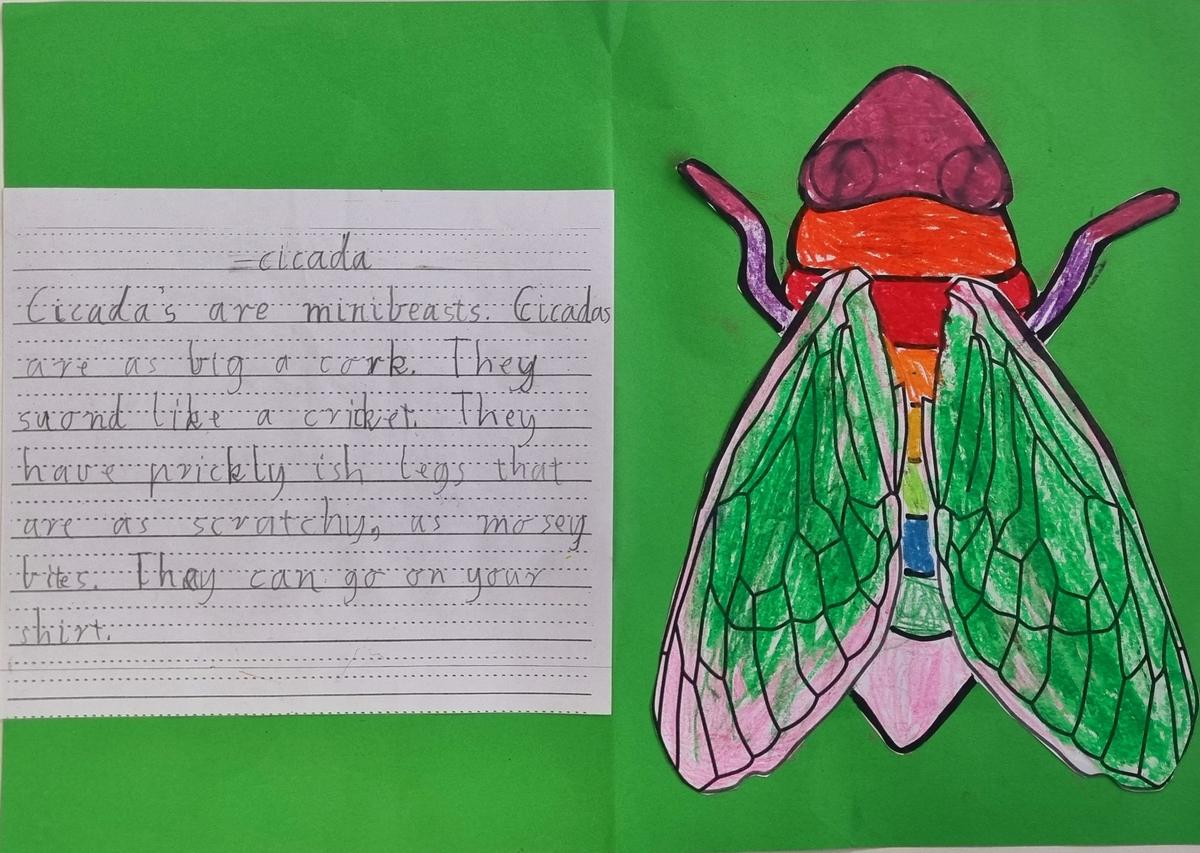 cicada
Cicada's are minibeasts. Cicadas
are as big a cork. They
suond like a cricket. They
have prickly ish legs that
are as scratchy, as mosey
bites. Thay can go on your
shirt.